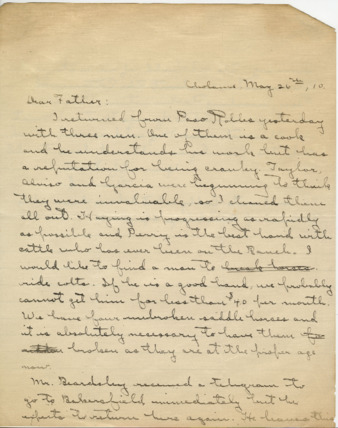 Cholame, May 26th, 10.
Dear Father:
I returned from Paso Robles yesterday
with three men. One of them is a cook
and he understands his work but has
a reputation for being cranky. Taylor,
and Garcia were beginning to think
they were invaluable, so I cleaned them
all out. Haying is progressing as rapidly
as possible and Berry is the best hand with
cattle who has ever been on the Ranch. I
would like to find a man to break horses
ride colts. If he is a good hand, we probably
cannot get him for less than $40 per month.
We have four unbroken saddle horses and
it is absolutely necessary to have them
broken as they are at the proper age
now.
Mr. Beardsley received a telegram to
go to Bakersfield immediately but he
expects to return here again. He leaves this